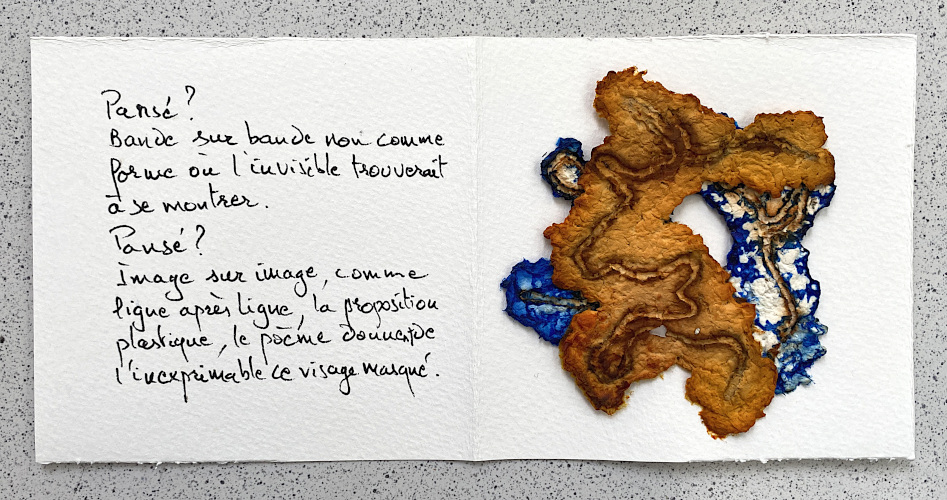 Pansé ?
Bande sur bande non comme
forme où l'invisible trouverait
à se montrer.
Pansé ?
Image sur image, comme
ligne après ligne, la proposition
plastique, le poème donnent de
l'inexprimable ce visage masqué.